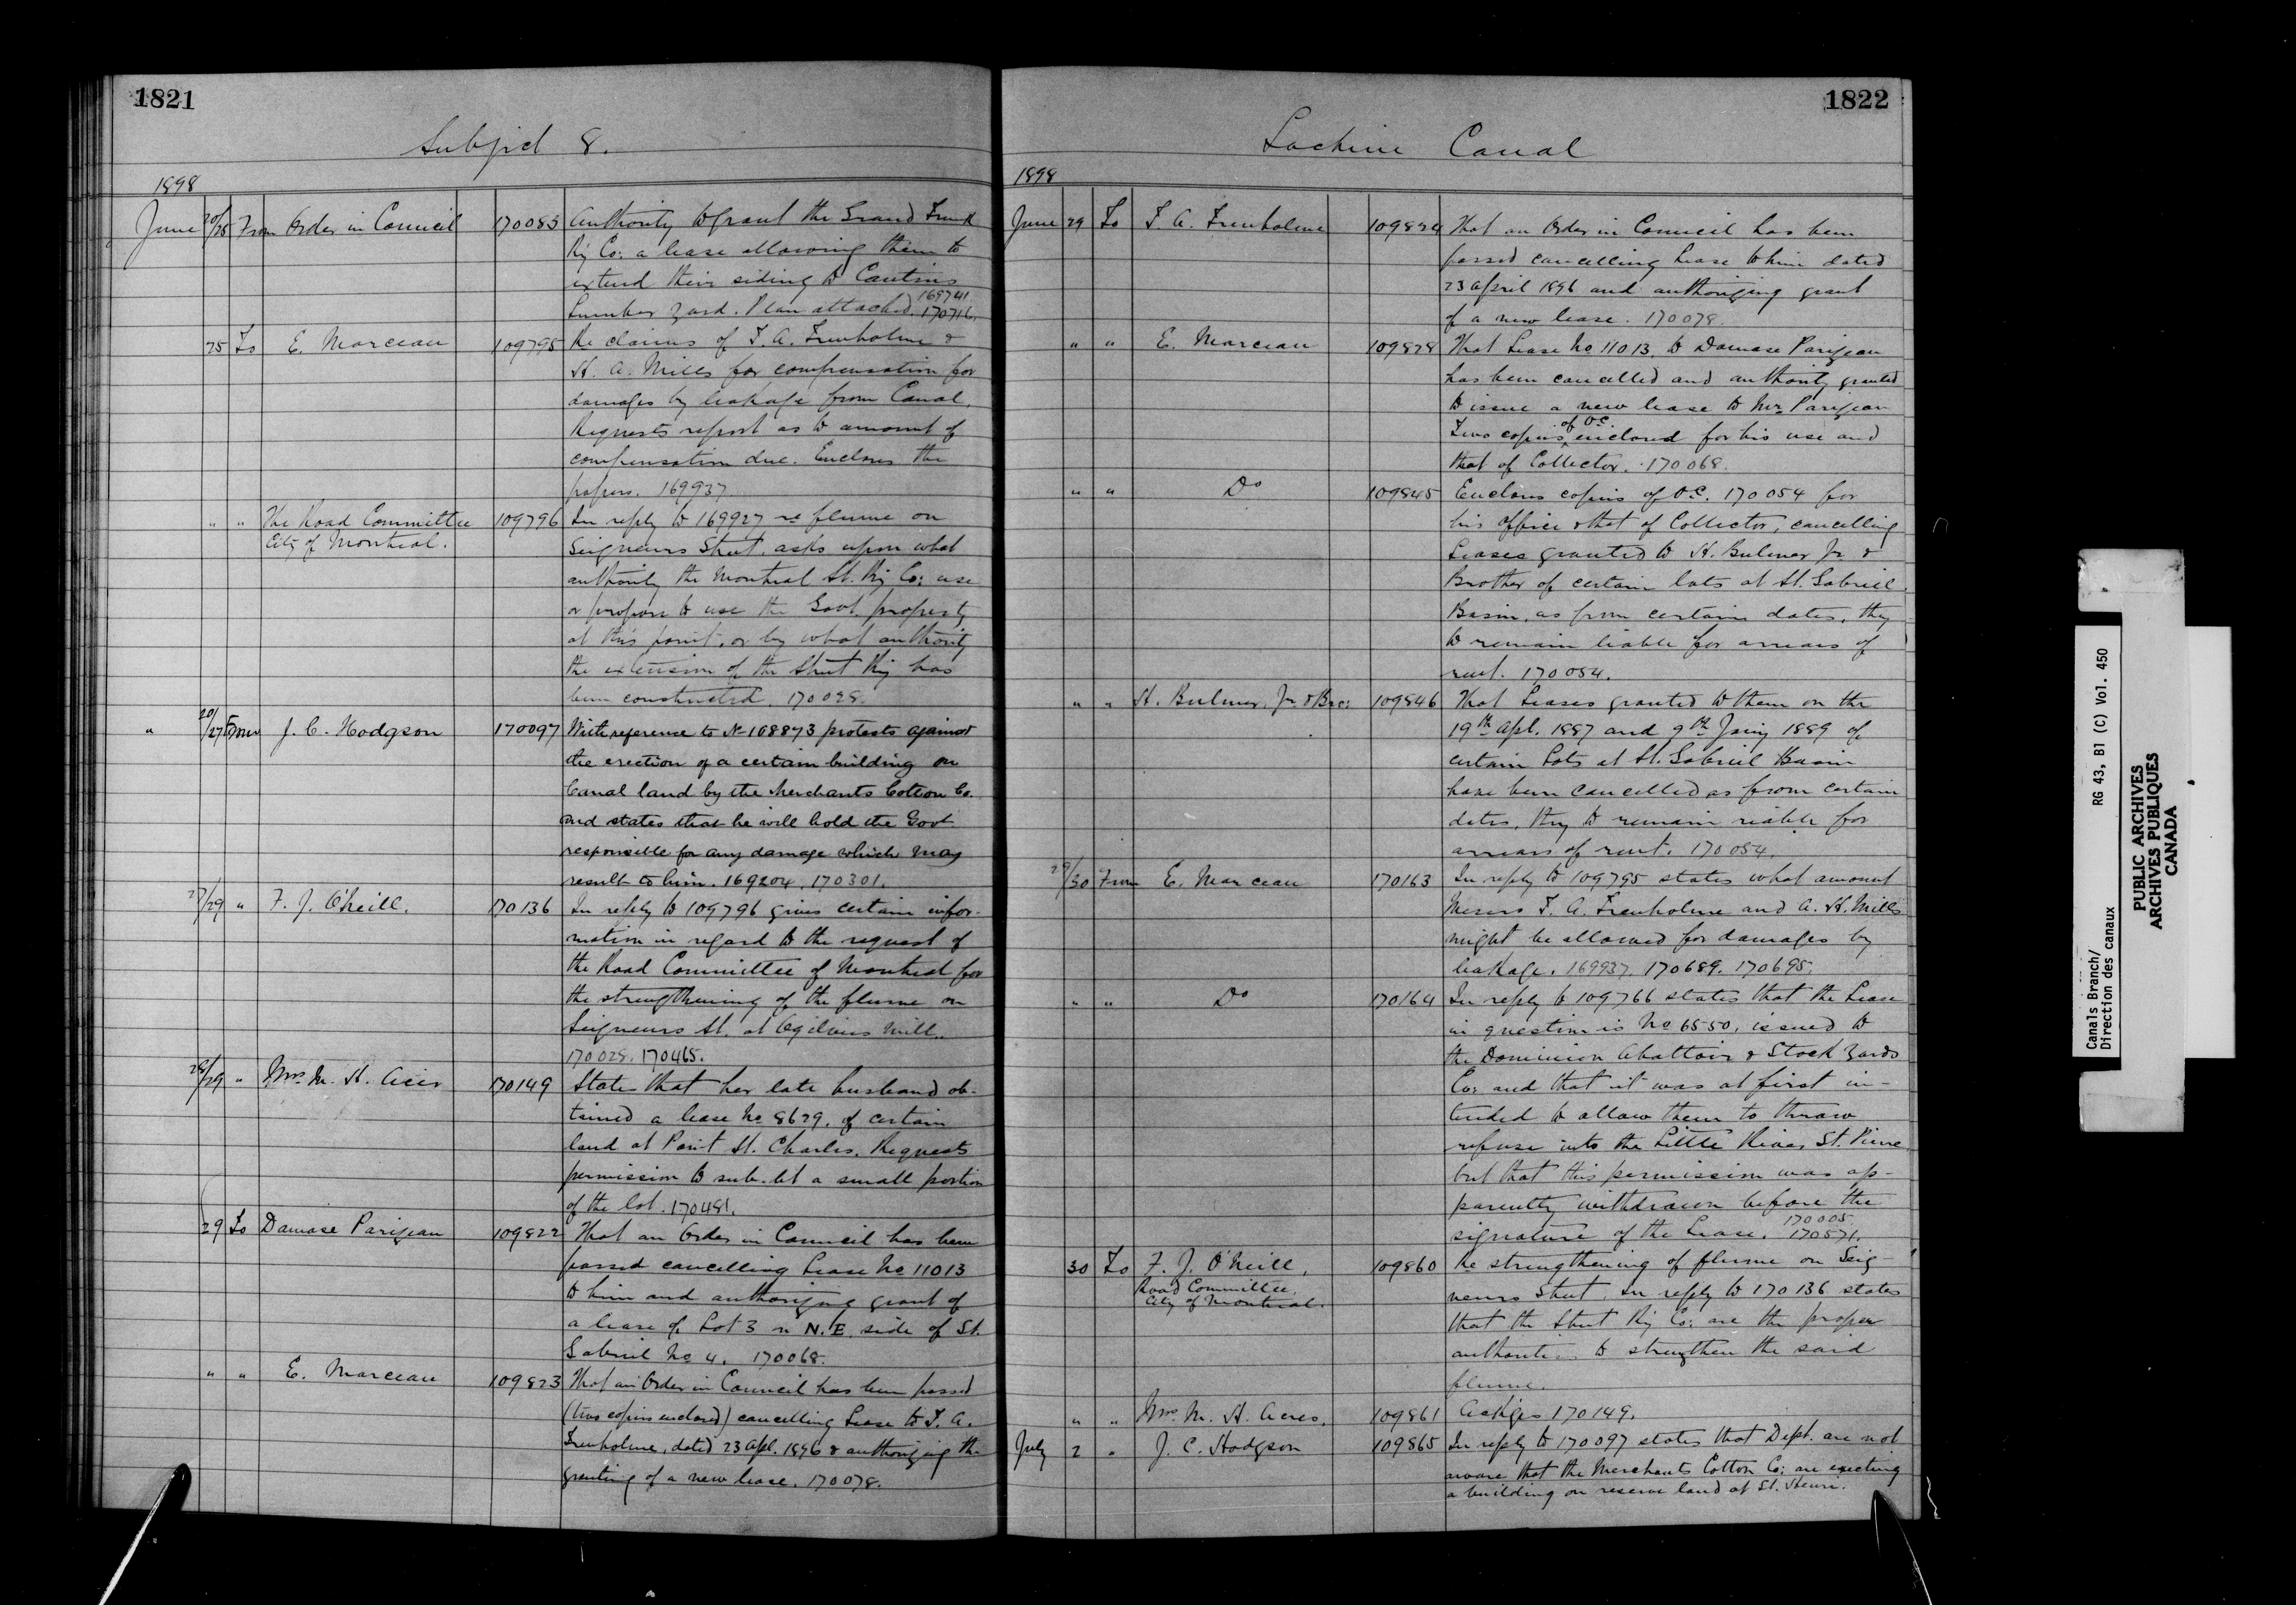 1821
Subject 8.
1898
June 20/25 From Order in Council 170083 Authority to grant the Grand Trunk
Ry Co: a lease allowing them to
extend their siding to Cantins
169741
Lumber yard. Plan attached. 170716.
25 To E. Marceau 109795 Re claims of T. A. Trenholme &
H. A. Mills for compensation for
damages by leakage from Canal.
Requests report as to amount of
compensation due. Encloses the
papers. 169937.
" " The Road Committee 109796 In reply to 169927 re flume on
City of Montreal. Seigneurs Street. asks upon what
authority the Montreal St. Ry Co: use
or propose to use the Govt. property
at this point, or by what authority
the extension of the Street Ry has
been constructed. 170028.
" 20/27 From J. C. Hodgson 170097 With reference to No 108873 protests against
the erection of a certain building on
Canal land by the Merchants Cotton Co.
and states that he will hold the Govt
responsible for any damage which may
result to him. 169204. 170301.
27/29 " F. J. O'Neill. 170136 In reply to 109796 gives certain infor-
mation in regard to the request of
the Road Committee of Montreal for
the strengthening of the flume on
Seigneurs St. at Ogilvies Mill.
170028. 170465.
28/29 " Mrs. M. H. Acres 170149 States that her late husband ob-
tained a lease No 8679. of certain
land at Point St. Charles. Requests
permission to sub-let a small portion
of the lot. 170481.
29 To Damase Parizeau 109822 That an Order in Council has been
passed cancelling Lease No 11013
to him and authorizing grant of
a lease of Lot 3 on N.E. side of St.
Gabriel No 4. 170068.
" " E. Marceau 109823 That an Order in Council has been passed
(two copies enclosed) cancelling Lease to T. A.
Trenholme, dated 23 Apl. 1896 & authorizing the
granting of a new lease. 170078.
1822
Lachine Canal
1898
June 29 To T. A. Trenholme 109824 That an Order in Council has been
passed cancelling Lease to him dated
23 April 1896 and authorizing grant
of a new lease. 170078.
" " E. Marceau 109828 That Lease No 11013. to Damase Parizeau
has been cancelled and authority granted
to issue a new lease to Mr. Parizeau
of O.C.
Two copies enclosed for his use and
that of Collector. 170068.
" " Do 109845 Encloses copies of O.C. 170054 for
his office & that of Collector, cancelling
Leases granted to H. Bulmer Jr. &
Brother of certain lots at St. Gabriel
Basin, as from certain dates, they
to remain liable for arrears of
rent. 170054.
" " H. Bulmer, Jr. & Bro: 109846 That Leases granted to them on the
19th Apl. 1887 and 9th Jany 1889 of
certain Lots at St. Gabriel Basin
have been cancelled as from certain
dates, they to remain liable for
arrears of rent. 170054.
29/30 From E. Marceau 170163 In reply to 109795 states what amount
Messrs T. A. Trenholme and A. H. Mills
might be allowed for damages by
leakage. 169937. 170689. 170695.
" " Do 170164 In reply to 109766 states that the Lease
in question is No 6550, issued to
the Dominion Abattoir & Stock Yards
Co: and that it was at first in-
tended to allow them to throw
refuse into the Little River St. Pierre
but that this permission was ap-
parently withdrawn before the
170005.
signature of the Lease. 170571.
30 To F. J. O'Neill, 109860 Re strengthening of flume on Seig-
Road Committee,
City of Montreal.
neurs Street. In reply to 170136 states
that the Street Ry Co: are the proper
authorities to strengthen the said
flume.
" " Mrs. M. H. Acres. 109861 Ackges 170149.
July 2 " J. C. Hodgson 109865 In reply to 170097 states that Dept. are not
aware that the Merchants Cotton Co: are erecting
a building on reserve land at St. Henri.
Canals Branch/
Direction des canaux
RG 43, B1 (C) Vol. 450
PUBLIC ARCHIVES
ARCHIVES PUBLIQUES
CANADA